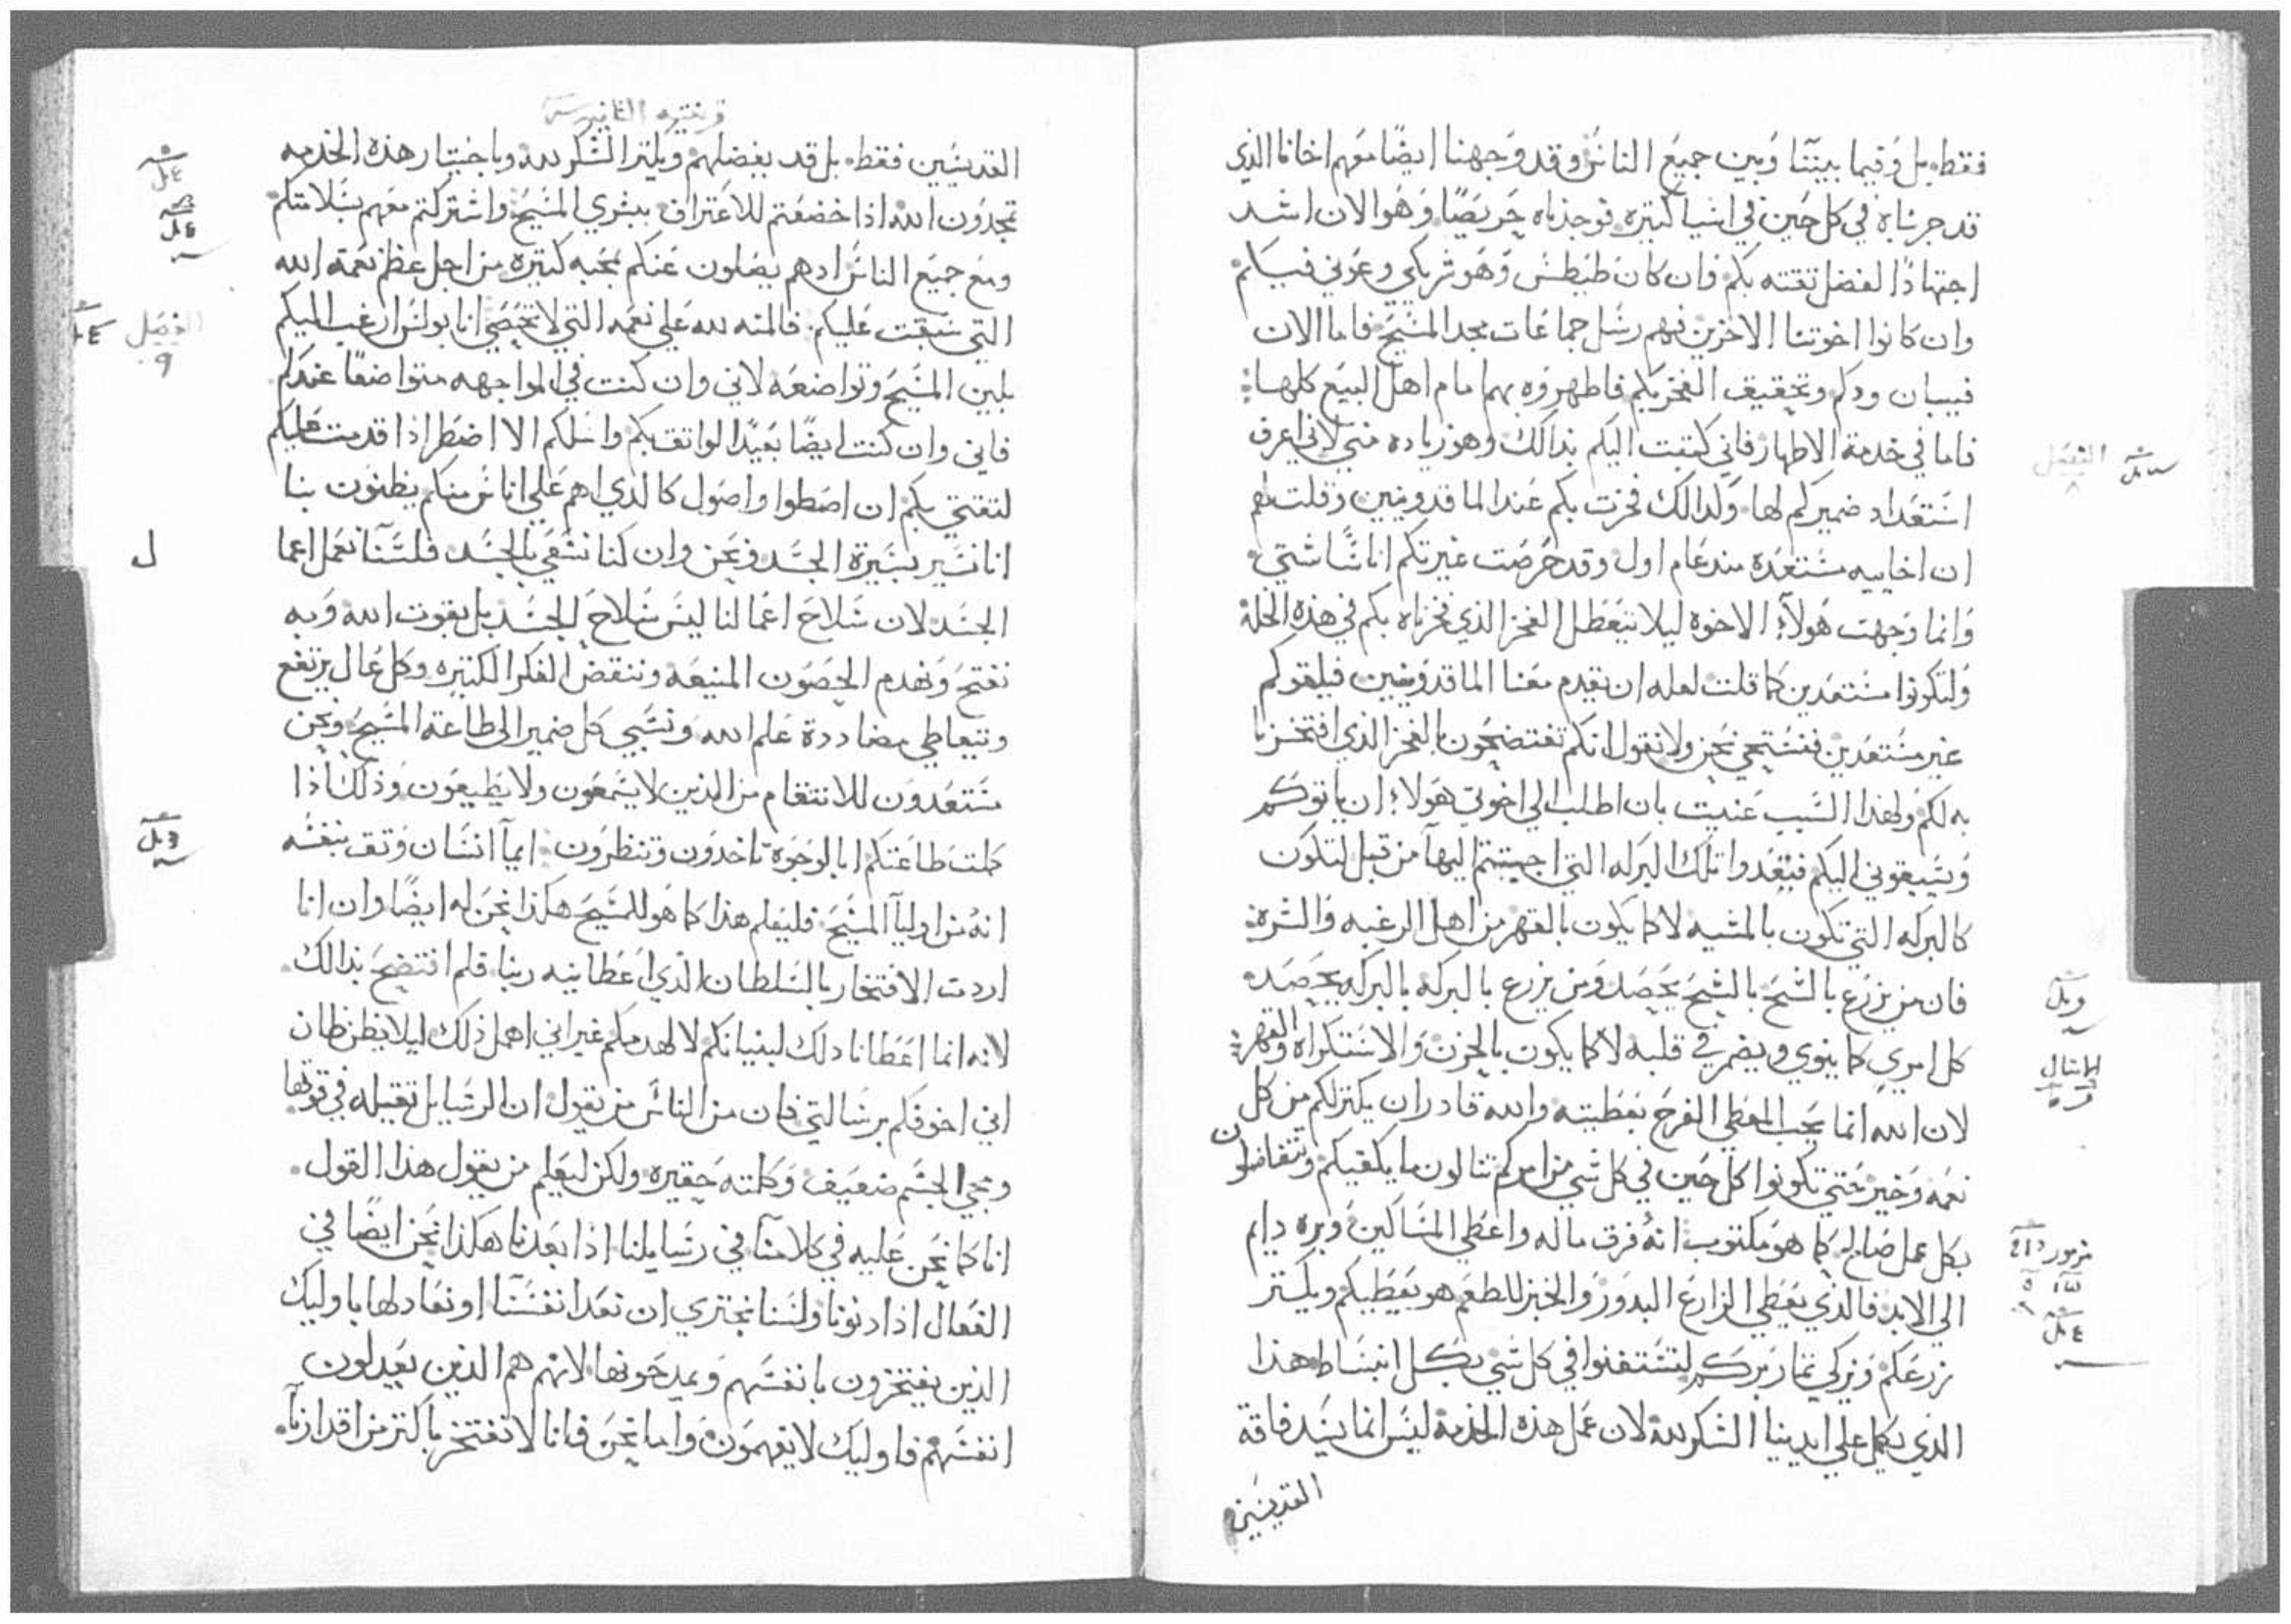 فقط. بل وفيما بيننا وبين جميع الناس وقد وجهنا ايضًا معهم اخانا الذي
قد جربناه في كل حين في اشيا كتيره. فوجدناه حريصًا. وهو الان اشد
اجتهادًا لفضل تقته بكم. فان كان طيطس وهو شريكي وعوني فيكم
وان كانوا اخوتنا الاخرين فهم رسل جماعات مجد المسيح. فاما الان
فبيان ودكم وتحقيق الفخر بكم فاظهروه بهم امام اهل البيع كلها
الفصل ٨
فاما في خدمة الاطهار فاني كتبت اليكم بذالك وهو زياده مني لاني اعرف
استعداد ضميركم لها. ولدالك فخرت بكم عند الماقدونيين وقلت لهم
ان اخاييه مستعده مند عام اول. وقد حرصت غيرتكم اناسًا شتي
وانما وجهت هولآء الاخوه ليلا يتعطل الفخر الذي فخرناه بكم في هذه الخلة
ولتكونوا مستعدين كما قلت لعله ان يقدم معنا الماقدونيين فيلقوكم
غير مستعدين فنستحي نحن ولا نقول انكم تفتضحون بالفخر الذي افتخرنا
به لكم ولهذا السبب عنيت بان اطلب الي اخوتي هولاء ان ياتوكم
ويسبقوني اليكم فيعدوا تلك البركه التي اجبتم اليها من قبل لتكون
كالبركه التي تكون بالمشيه لا كما يكون بالقهر من اهل الرغبه والشره
فان من يزرع بالشح بالشح يحصد ومن يزرع بالبركه بالبركه يحصد
كل امري كما ينوي ويضمر في قلبه لا كما يكون بالحزن والاستكراه والقهر
الامثال
لان الله انما يحب المعطي الفرح بعطيته والله قادر ان يكتر لكم من كل
نعمه وخير حتي تكونوا كل حين في كل شي من امركم تنالون ما يكفيكم وتتفاضلون
بكل عمل صالح كما هو مكتوب انه فرق ماله واعطي المساكين وبره دايم
مزمور
الي الابد فالذي يعطي الزارع البدور والخبز للطعم هو يعطيكم ويكتر
زرعكم ويزكي تمار بركم لتستغنوا في كل شي بكل انبساط هذا
الذي يكمل علي ايدينا الشكر لله لان عمل هذه الخدمة ليس انما يسد فاقة
القديسين
قرنتيه الثانيه
القديسين فقط. بل قد يفضلهم ويكتر الشكر لله وباختبار هذه الخدمه
تمجدون الله اذا خضعتم للاعتراف ببشري المسيح. واشتركتم معهم بسلامتكم
ومع جميع الناس ادهم يصلون عنكم بمحبه كتيره من اجل عظم نعمة الله
التي سبقت عليكم. فالمنه لله علي نعمه التي لا تحصي انا بولس ارغب اليكم
الفصل ٩
بلين المسيح وتواضعه لاني وان كنت في المواجهه متواضعًا عندكم
فاني وان كنت ايضًا بعيدًا لواتق بكم واسلكم الا اضطر اذا قدمت عليكم
لتقتي بكم ان اسطوا واصول كالذي اهم علي اناس منكم يظنون بنا
انا نسير بسيرة الجسد ونحن وان كنا نسعي بالجسد فلسنا نعمل اعما
الجسد لان سلاح اعمالنا ليس سلاح الجسد بل بقوت الله وبه
نفتح ونهدم الحصون المنيعه وننقض الفكر الكتيره وكل عال يرتفع
ويتعاطي مضاددة علم الله ونسبي كل ضمير الي طاعة المسيح ونحن
مستعدون للانتقام من الذين لا يسمعون ولا يطيعون وذلك اذا
كملت طاعتكم ابالوجوه تاخدون وتنظرون. ايمآ انسان وتق بنفسه
انه من اوليآ المسيح فليعلم هذا كما هو للمسيح هكذا نحن له ايضًا وان انا
اردت الافتخار بالسلطان الذي اعطانيه ربنا فلم افتضح بذالك.
لانه انما اعطانا دلك لبنيانكم لا لهدمكم غير اني اهمل ذلك ليلا يظن ظان
اني اخوفكم برسالتي فان من الناس من يقول ان الرسايل تقيله في قوتها
ومجي الجسم ضعيف وكلمته حقيره ولكن ليعلم من يقول هذا القول.
انا كما نحن عليه في كلامنا في رسايلنا اذا بعدنا هكذا نحن ايضًا في
الفعال اذا دنونا ولسنا نجتري ان نعد انفسنا او نعادلها باوليك
الذين يفتخرون بانفسهم ويمدحونها لانهم هم الذين يعدلون
انفسهم فاوليك لا يفهمون. واما نحن فانا لا نفتخر باكتر من اقدارنا.